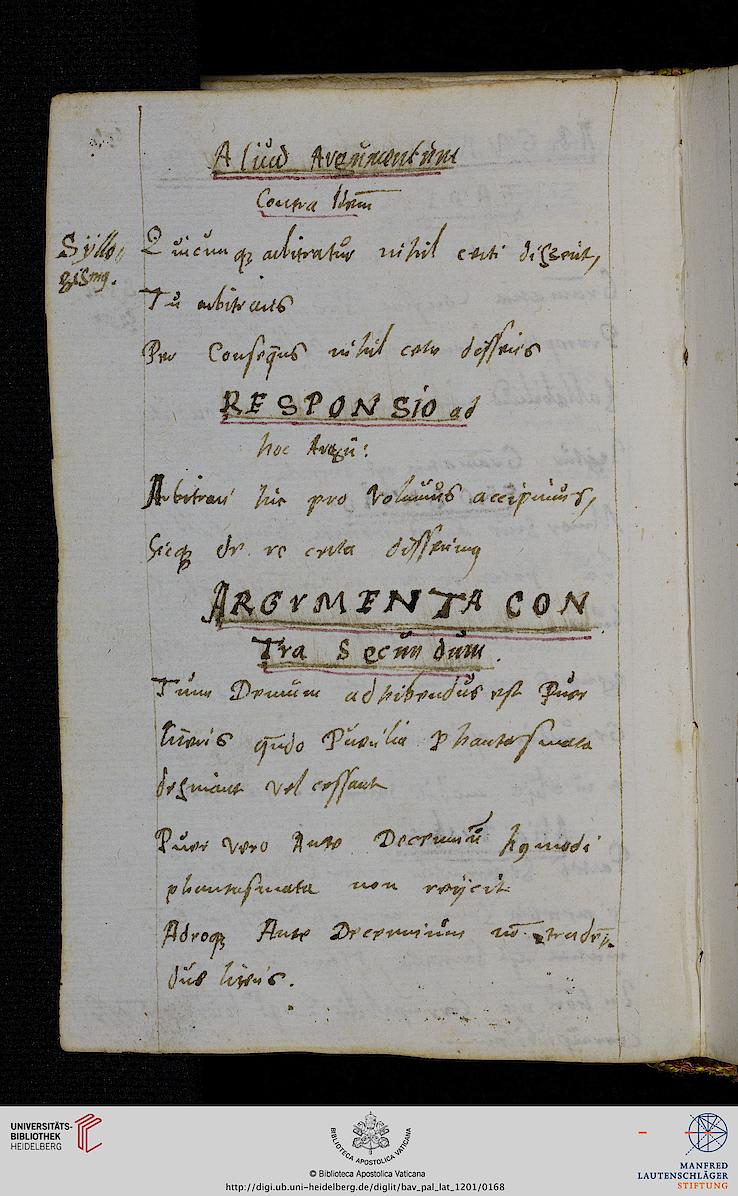 Aliud Argumentum
Contra Idem̄
Syllo„
gismꝯ.
Quicunqꝫ arbitratur nihil certi disserit,
Tu arbitraris
Per Conseq̄ns nihil certe disseris
RESPONSIO ad
hoc Argū:
Arbitrari hic pro volumus accipimus,
Sicqꝫ de re certa disserimꝯ
ARGVMENTA CON
Tra Secundum.
Tum Demum adhibendus est Puer
literis qn̄do Puerilia Phantasmata
desinunt vel cessant
Puer vero Ante Decenniū hꝯmodi
phantasmata non reijcit
Adeoqꝫ Ante Decennium nō traden„
dus literis.
UNIVERSITÄTS-
BIBLIOTHEK
HEIDELBERG
BIBLIOTECA APOSTOLICA VATICANA
© Biblioteca Apostolica Vaticana
http://digi.ub.uni-heidelberg.de/diglit/bav_pal_lat_1201/0168
MANFRED
LAUTENSCHLÄGER
STIFTUNG